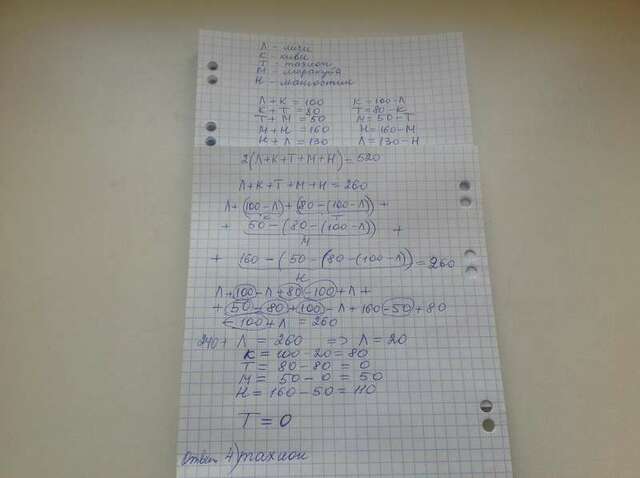 Л - личи
К - киви
Т - тахион
М - маракуйа
Н - мангостин
Л + К = 100 К = 100 - Л
К + Т = 80 Т = 80 - К
Т + М = 50 М = 50 - Т
М + Н = 160 Н = 160 - М
Н + Л = 130 Л = 130 - Н
2(Л+К+Т+М+Н) = 520
Л+К+Т+М+Н = 260
Л + (100 - Л) + (80 - (100 - Л)) +
К Т
+ 50 - (80 - (100 - Л)) +
М
+ 160 - (50 - (80 - (100 - Л))) = 260
Н
Л + 100 - Л + 80 - 100 + Л +
+ 50 - 80 + 100 - Л + 160 - 50 + 80
- 100 + Л = 260
240 + Л = 260 => Л = 20
К = 100 - 20 = 80
Т = 80 - 80 = 0
М = 50 - 0 = 50
Н = 160 - 50 = 110
Т = 0
Ответ 4) тахион